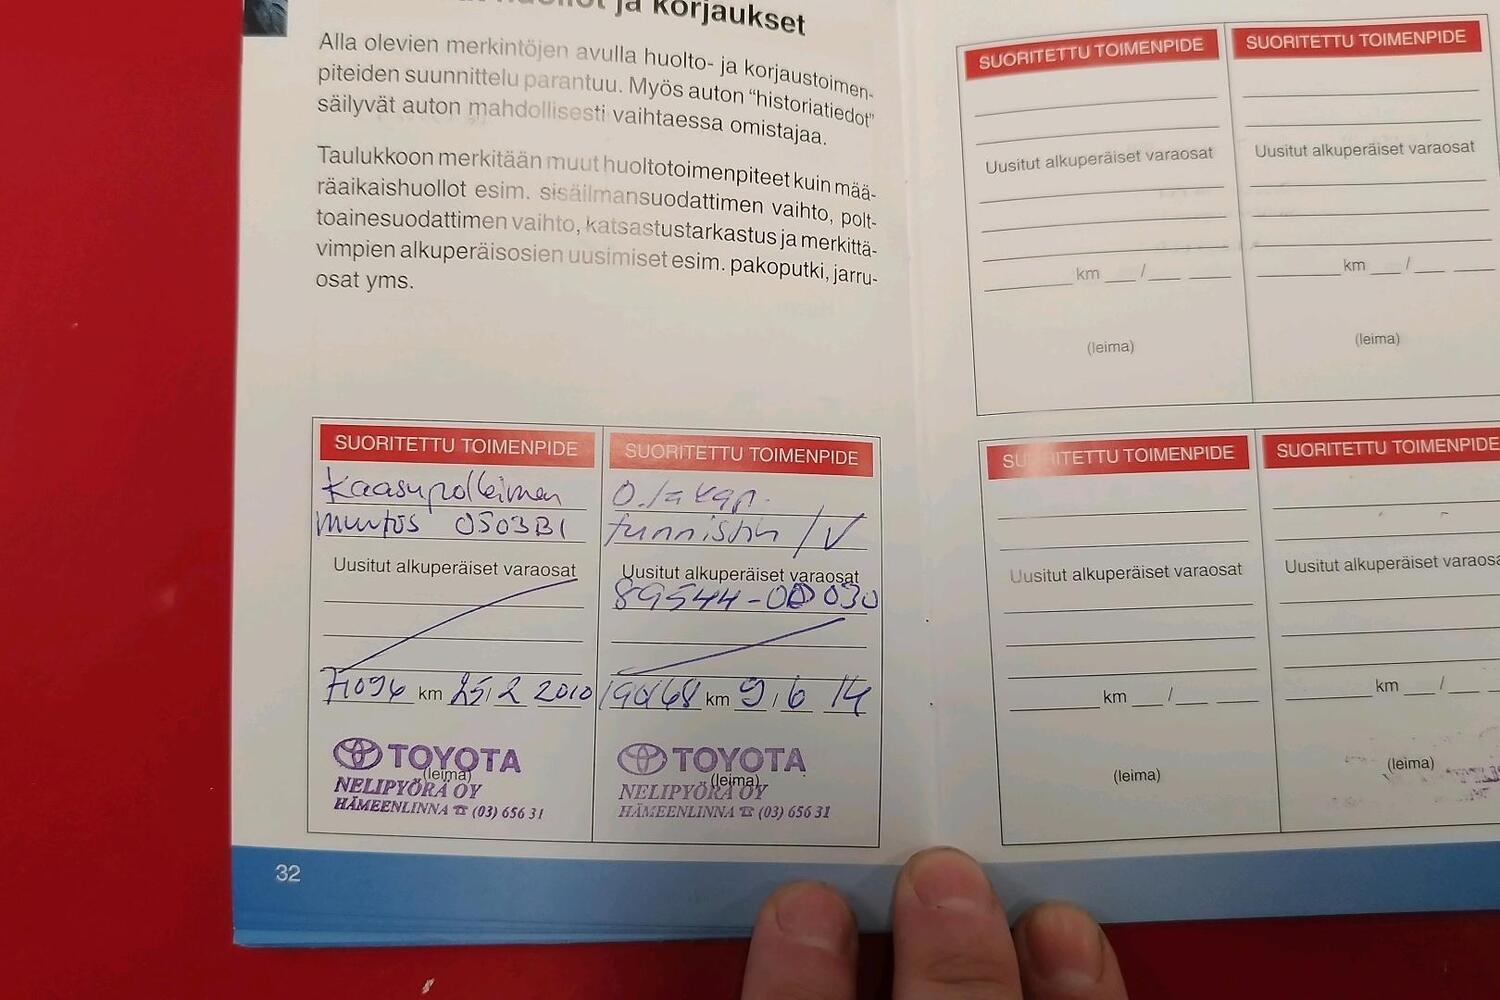 huollot ja korjaukset
Alla olevien merkintöjen avulla huolto- ja korjaustoimen-
piteiden suunnittelu parantuu. Myös auton “historiatiedot”
säilyvät auton mahdollisesti vaihtaessa omistajaa.
Taulukkoon merkitään muut huoltotoimenpiteet kuin mää-
räaikaishuollot esim. sisäilmansuodattimen vaihto, polt-
toainesuodattimen vaihto, katsastustarkastus ja merkittä-
vimpien alkuperäisosien uusimiset esim. pakoputki, jarru-
osat yms.
SUORITETTU TOIMENPIDE
Kaasupolkimen
muutos 0503B1
Uusitut alkuperäiset varaosat
71094 km 25,2 2010
TOYOTA
(leima)
NELIPYÖRÄ OY
HÄMEENLINNA ☎ (03) 656 31
SUORITETTU TOIMENPIDE
tunnistin /V
Uusitut alkuperäiset varaosat
89544-0D030
km 9,6 14
TOYOTA
(leima)
NELIPYÖRÄ OY
HÄMEENLINNA ☎ (03) 656 31
32
SUORITETTU TOIMENPIDE
Uusitut alkuperäiset varaosat
km /
(leima)
SUORITETTU TOIMENPIDE
Uusitut alkuperäiset varaosat
km /
(leima)
SUORITETTU TOIMENPIDE
Uusitut alkuperäiset varaosat
km /
(leima)
SUORITETTU TOIMENPIDE
Uusitut alkuperäiset varaosa
km /
(leima)